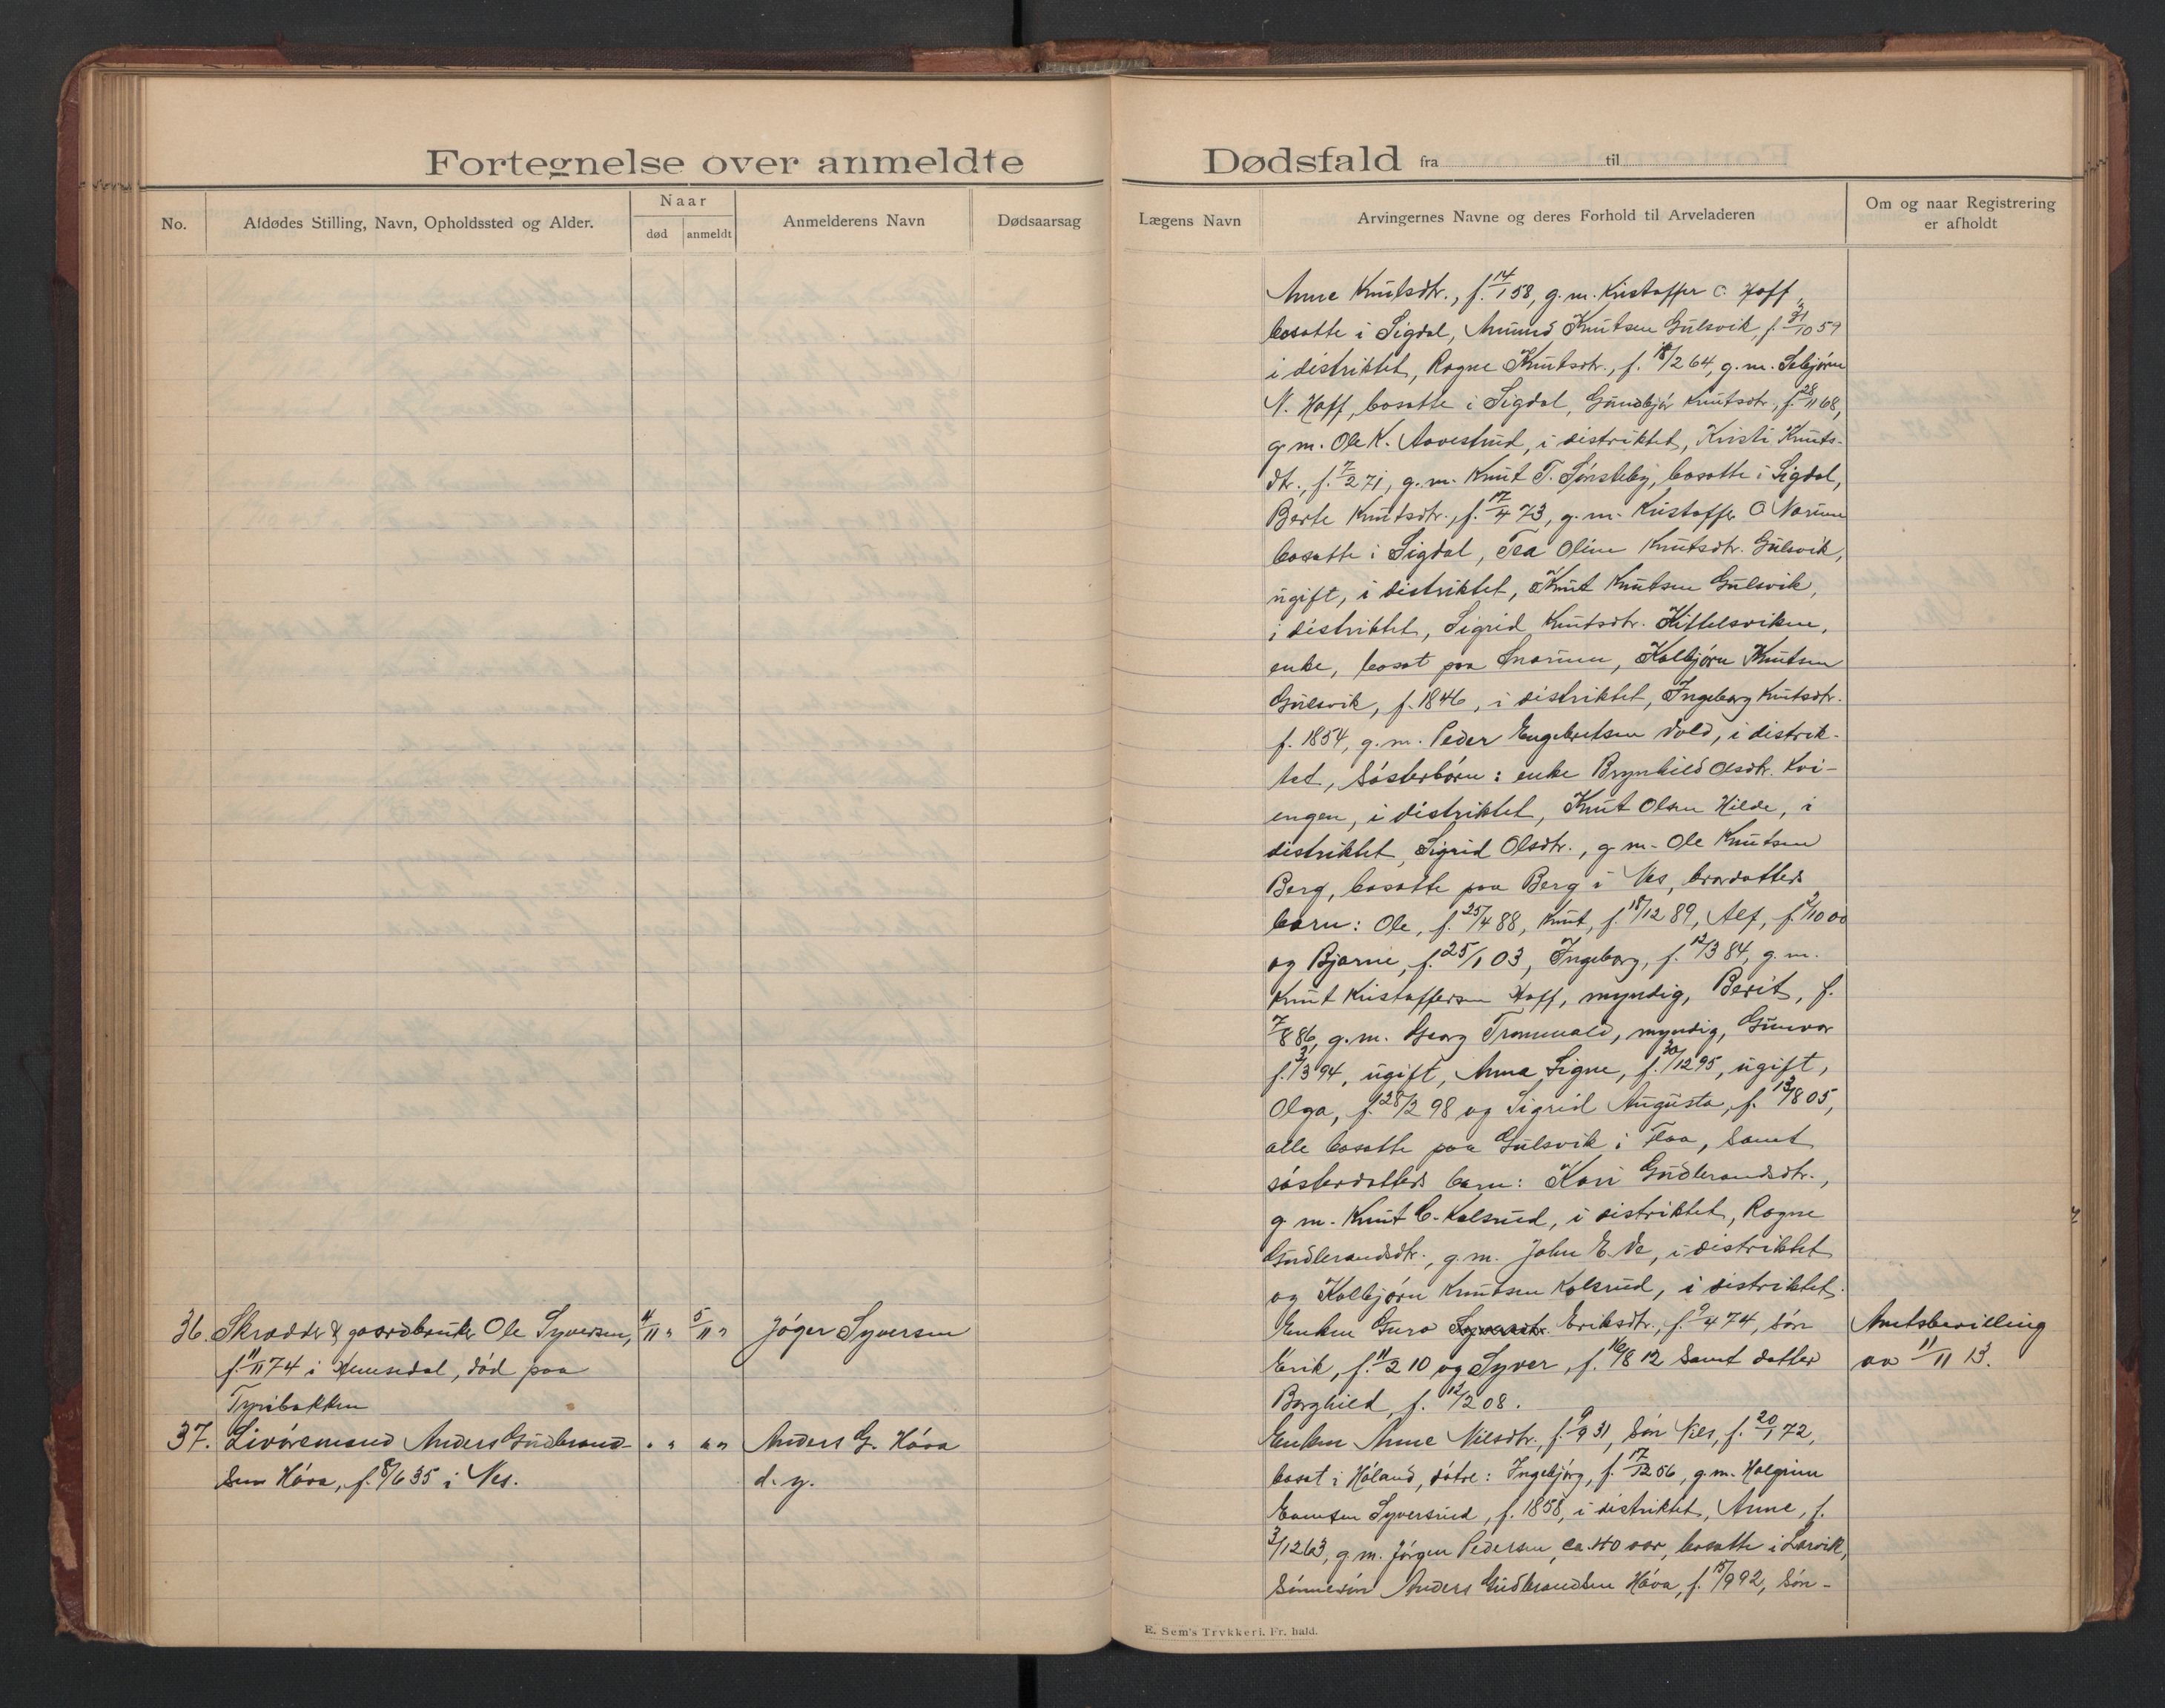 Fortegnelse over anmeldte
Dødsfald fra til
No.
Afdødes Stilling, Navn, Opholdssted og Alder.
Naar
død
anmeldt
Anmelderens Navn
Dødsaarsag
Lægens Navn
Arvingernes Navne og deres Forhold til Arveladeren
Om og naar Registrering
er afholdt
Anne Knutsdtr., f. 14/1 58, g.m. Kristoffer C. Hoff
bosatte i Sigdal, Amund Knutsen Gulsvik, f. 31/10 59
i distriktet, Ragne Knutsdtr., f. 18/2 64, g.m. Sebjörn
N. Hoff, bosatte i Sigdal, Gunbjör Knutsdtr., f. 28/11 68,
g.m. Ole K. Aavestrud, i distriktet, Kristi Knuts-
dtr., f. 7/2 71, g.m. Knut T. Tönsteby, bosatte i Sigdal,
Berte Knutsdtr., f. 17/4 73, g.m. Kristoffer O Narum
bosatte i Sigdal, Tea Oline Knutsdtr. Gulsvik,
ugift, i distriktet, Knut Knutsen Gulsvik,
i distriktet, Sigrid Knutsdtr. Kittelsviken,
enke, bosat paa Snarum, Kolbjörn Knutsen
Gulsvik, f. 1846, i distriktet, Ingeborg Knutsdtr.
f. 1854, g.m. Peder Engebretsen Vold, i distrik-
tet, Sösterbörn: enke Brynhild Olsdtr. Kvi-
engen, i distriktet, Knut Olsen Hilde, i
distriktet, Sigrid Olsdtr., g.m. Ole Knutsen
Berg, bosatte paa Berg i Nes, brordatters
barn: Ole, f. 25/4 88, Knut, f. 18/12 89, Alf, f. 2/10 00
og Bjarne, f. 25/1 03, Ingeborg, f. 12/3 84, g.m.
Knut Kristoffersen Hoff, myndig, Berit, f.
7/8 86, g.m. Georg Tromwald, myndig, Gunvor
f. 3/3 94, ugift, Anna Signe, f. 30/12 95, ugift,
Olga, f. 28/2 98 og Sigrid Augusta, f. 13/8 05,
alle bosatte paa Gulsvik i Flaa, samt
sösterdatters barn: Kari Gudbrandsdtr.,
g.m. Knut C. Kolsrud, i distriktet, Ragne
Gudbrandsdtr., g.m. John E. Ve, i distriktet
og Kolbjörn Knutsen Kolsrud, i distriktet.
36. Skrædder & gaardbruker Ole Syversen, 4/11 " 5/11 " Jöger Syversen
f. 11/11 74 i Hemsedal, död paa
Tyribakken
Enken Guro Eriksdtr., f. 9/4 74, sön
Erik, f. 11/2 10 og Syver, f. 16/8 12 samt datter
Borghild, f. 12/2 08.
Amtsbevilling
av 11/11 13.
37. Livöremand Anders Gudbrand- " " " " Anders G. Háva
sen Háva, f. 8/6 35 i Nes. d.y.
Enken Anne Nilsdtr., f. 9/9 31, sön Nils, f. 20/1 72,
bosat i Höland, dötre: Ingebjörg, f. 17/12 56, g.m. Halgrim
Syversrud, f. 1858, i distriktet, Anne, f.
3/12 63, g.m. Jörgen Pedersen, ca. 40 aar, bosatte i Larvik,
Sönnesön Anders Gudbrandsen Háva, f. 15/9 92, sön-
E. Sem's Trykkeri. Fr. hald.